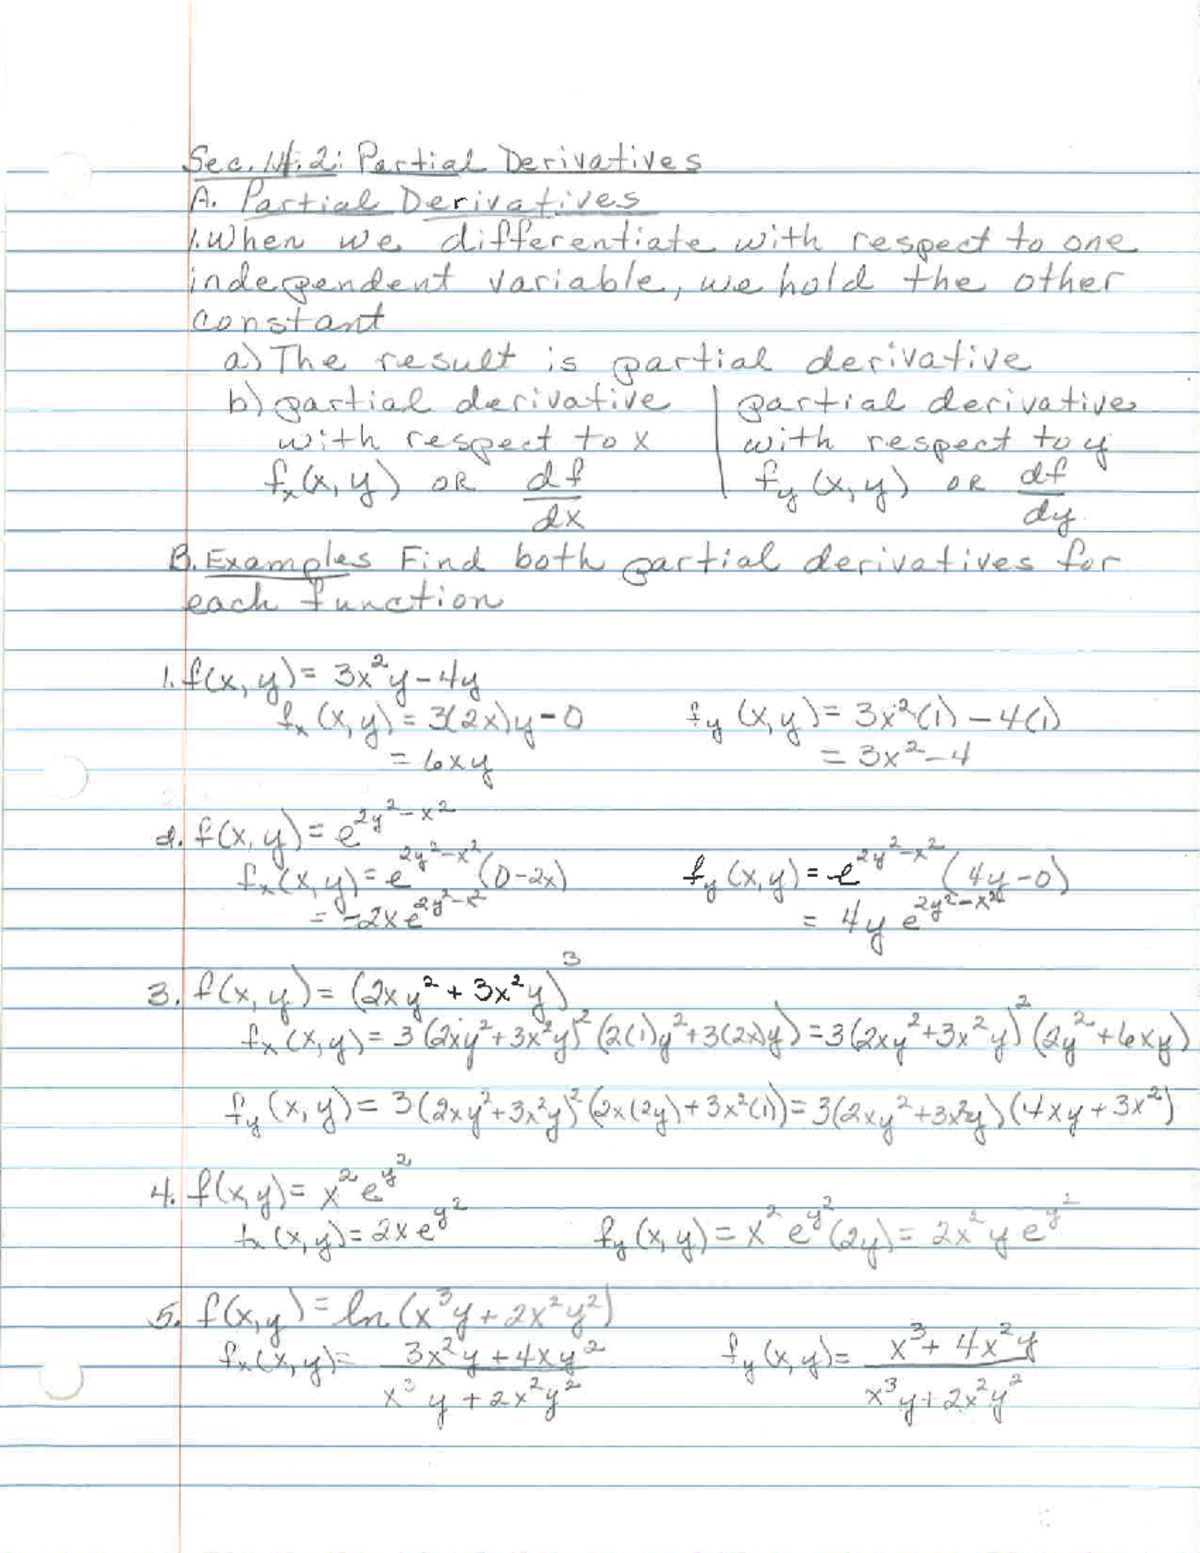 Sec. 14.2: Partial Derivatives
A. Partial Derivatives
1. When we differentiate with respect to one
independent variable, we hold the other
constant
a) The result is partial derivative
b) partial derivative | partial derivative
with respect to x | with respect to y
fₓ(x, y) OR df/dx | f_y (x, y) OR df/dy
B. Examples Find both partial derivatives for
each function
1. f(x, y) = 3x²y - 4y
fₓ(x, y) = 3(2x)y - 0    f_y (x, y) = 3x²(1) - 4(1)
= 6xy    = 3x² - 4
2. f(x, y) = e^{2y² - x²}
fₓ(x, y) = e^{2y² - x²} (0 - 2x)    f_y (x, y) = e^{2y² - x²} (4y - 0)
= -2x e^{2y² - x²}    = 4y e^{2y² - x²}
3. f(x, y) = (2xy² + 3x²y)³
fₓ(x, y) = 3(2xy² + 3x²y)² (2(1)y² + 3(2x)y) = 3(2xy² + 3x²y)² (2y² + 6xy)
f_y (x, y) = 3(2xy² + 3x²y)² (2x(2y) + 3x²(1)) = 3(2xy² + 3x²y) (4xy + 3x²)
4. f(x, y) = x² e^{y²}
fₓ(x, y) = 2x e^{y²}    f_y (x, y) = x² e^{y²} (2y) = 2x² y e^{y²}
5. f(x, y) = ln (x³y + 2x²y²)
fₓ(x, y) = 3x²y + 4xy² / x³y + 2x²y²    f_y (x, y) = x³ + 4x²y / x³y + 2x²y²